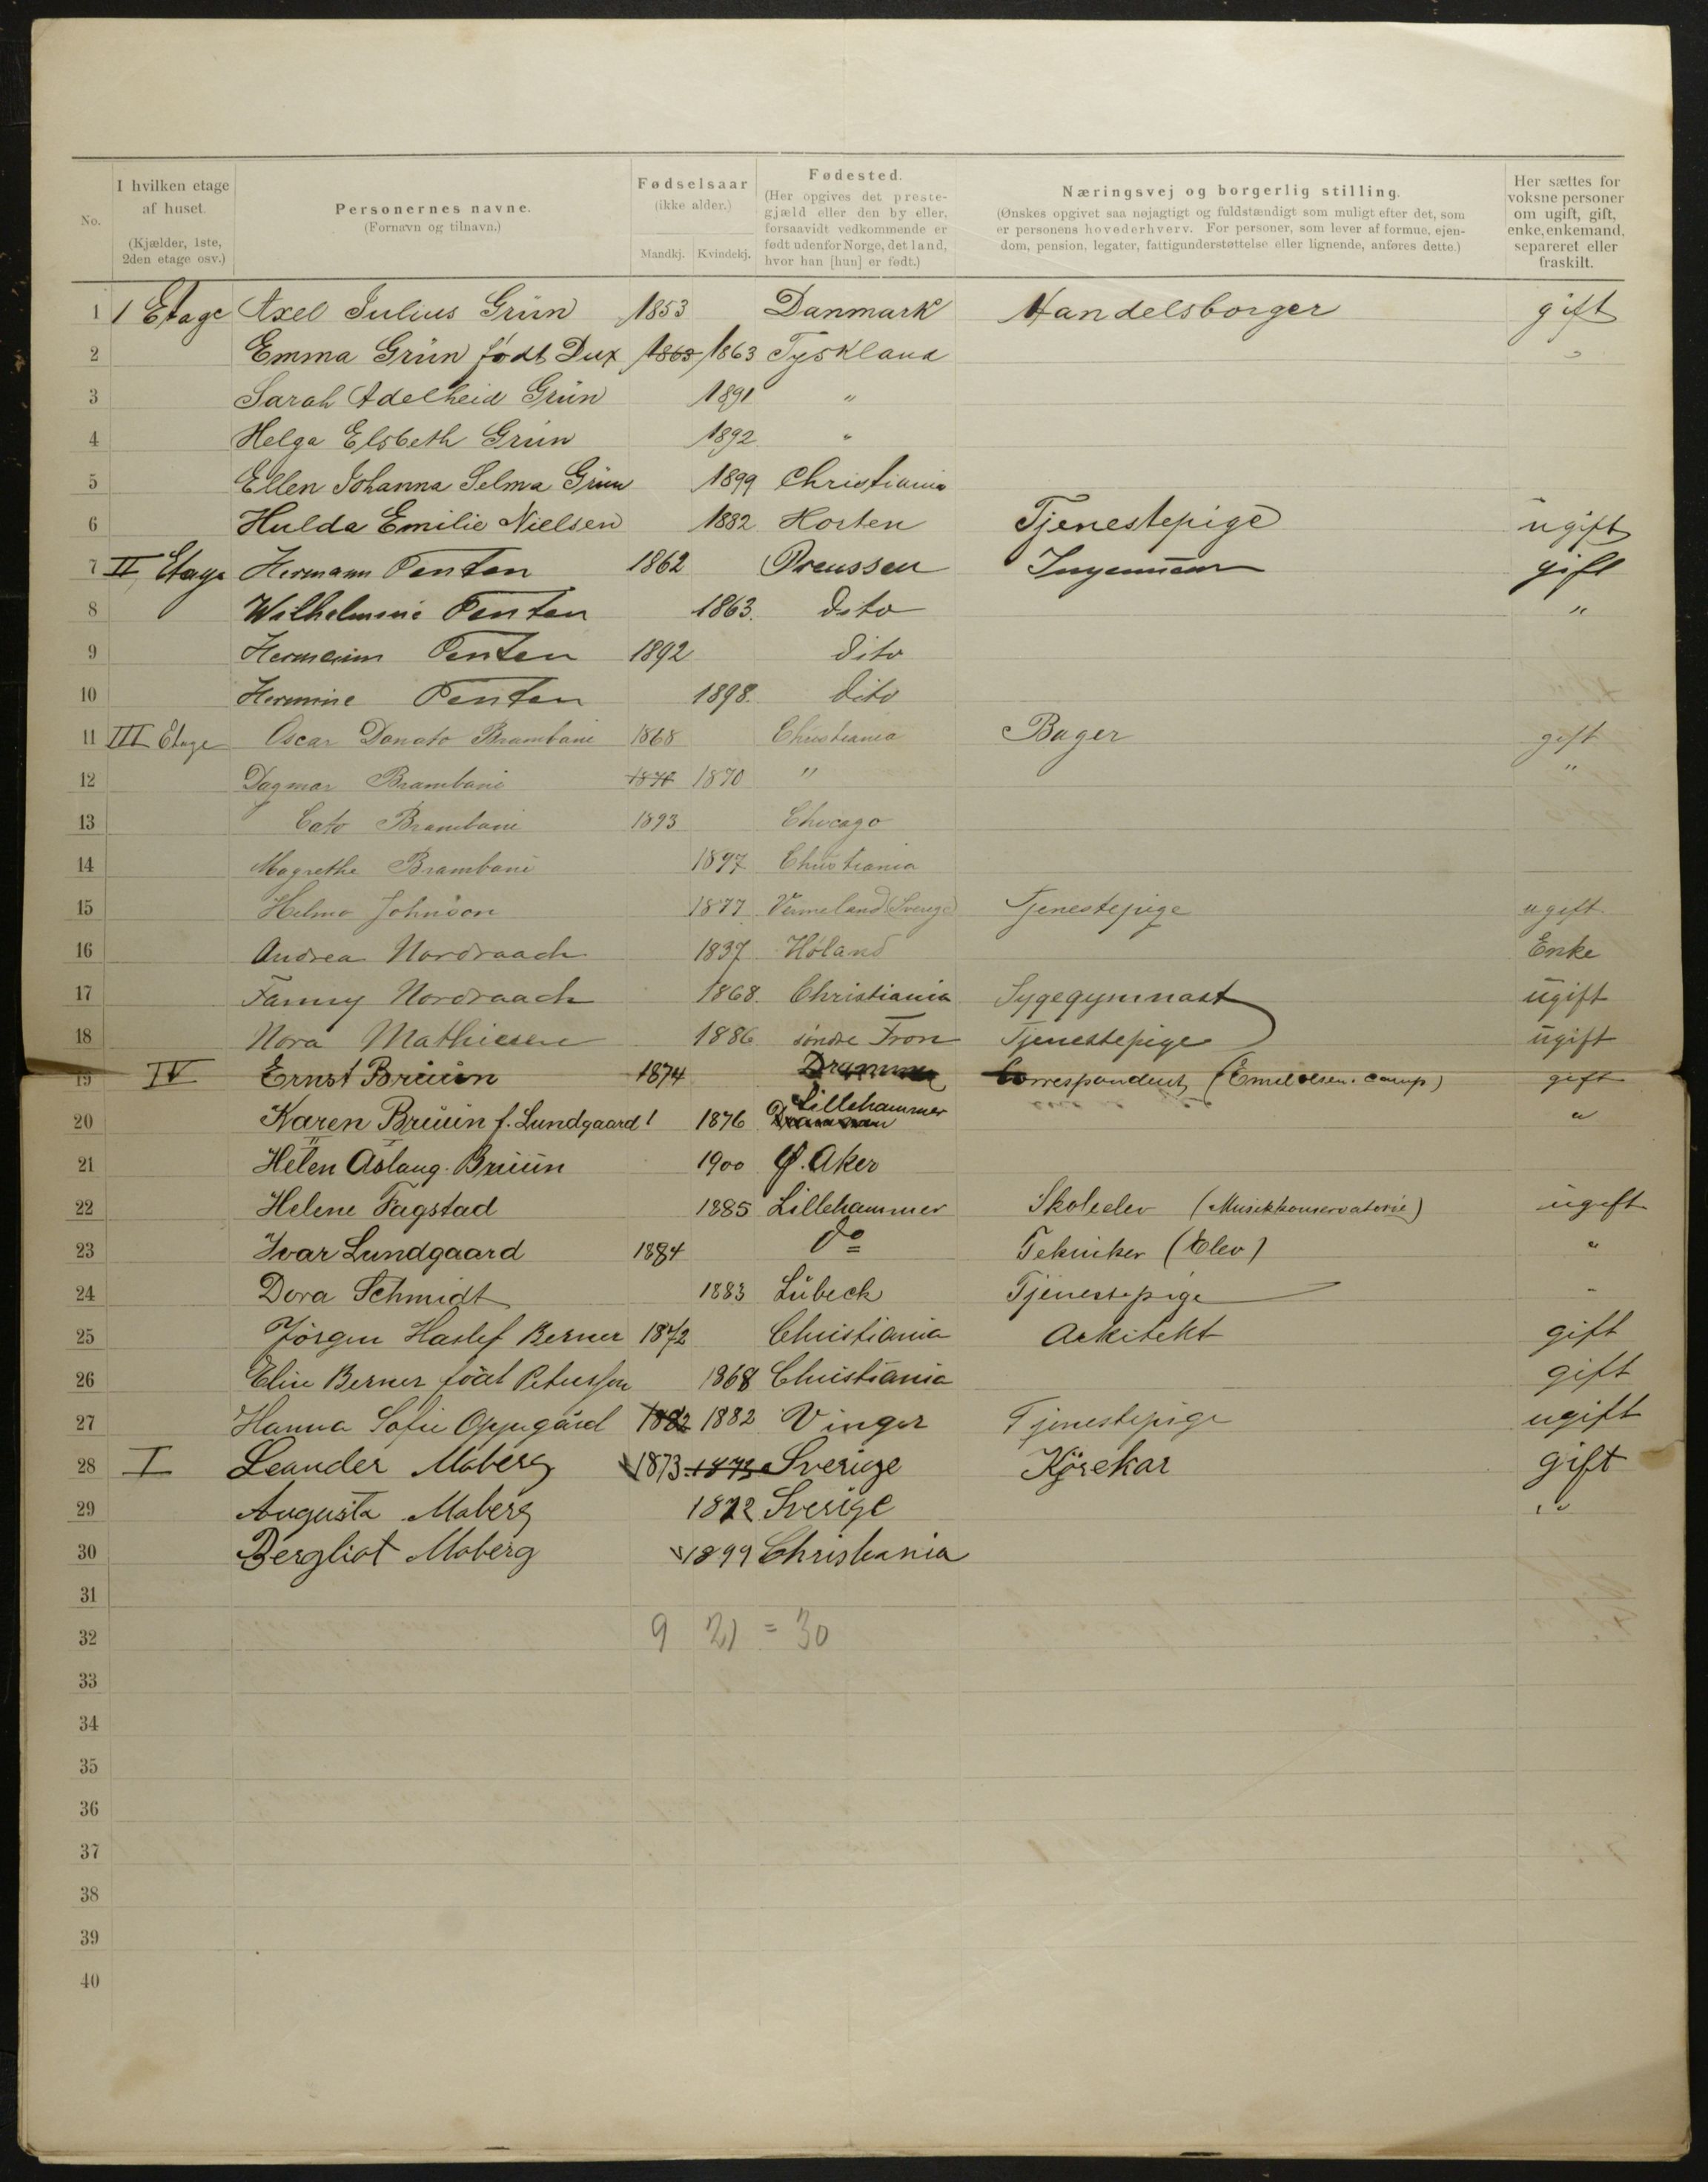 No. I hvilken etage af huset. (Kjælder, 1ste, 2den etage osv.) Personernes navne. (Fornavn og tilnavn.) Fødselsaar (ikke alder.) Mandkj. Kvindekj. Fødested. (Her opgives det prestegjæld eller den by eller, forsaavidt vedkommende er født udenfor Norge, det land, hvor han [hun] er født.) Næringsvej og borgerlig stilling. (Ønskes opgivet saa nøjagtigt og fuldstændigt som muligt efter det, som er personens hovederhverv. For personer, som lever af formue, ejendom, pension, legater, fattigunderstøttelse eller lignende, anføres dette.) Her sættes for voksne personer om ugift, gift, enke, enkemand, separeret eller fraskilt.
1 1 Etage Axel Julius Grün 1853 Danmark Handelsborger gift
2 Emma Grün født Dux 1863 1863 Tyskland "
3 Sarah Adelheid Grün 1891 "
4 Helga Elsbeth Grün 1892 "
5 Ellen Johanna Selma Grün 1899 Christiania
6 Hulda Emilie Nielsen 1882 Horten Tjenestepige ugift
7 II Etage Hermann Penten 1862 Preussen Ingenieur gift
8 Wilhelmine Penten 1863. dito "
9 Hermann Penten 1892 dito
10 Hermine Penten 1898. dito
11 III Etage Oscar Donato Brambani 1868 Christiania Bager gift
12 Dagmar Brambani 1870 1870 " "
13 Cato Brambani 1893 Chicago
14 Magrethe Brambani 1897 Christiania
15 Helma Johnson 1877 Vermeland (Sverige) Tjenestepige ugift
16 Andrea Nordraach 1837 Høland Enke
17 Fanny Nordraach 1868. Christiania Sygegymnast ugift
18 Nora Mathiesen 1886 søndre Fron Tjenestepige ugift
19 IV Ernst Brüün 1874 Drammen Correspondent, (Emil Olsen. Comp) gift
20 Karen Brüün f. Lundgaard! 1876 Drammen Lillehammer "
21 Helen Aslaug Brüün 1900 Ø. Aker
22 Helene Fagstad 1885 Lillehammer Skoleelev (Musikkonservatorie) ugift
23 Ivar Lundgaard 1884 do Tekniker (Elev) "
24 Dora Schmidt 1883 Lübeck Tjenestepige "
25 Jörgen Haslef Berner 1872 Christiania Arkitekt gift
26 Elise Berner född Peterssen 1868 Christiania gift
27 Hanna Sofie Oppegård 1882 1882 Vinger Tjenestepige ugift
28 I Leander Moberg 1873. 1873 Sverige Kjørekar gift
29 Augusta Moberg 1872 Sverige "
30 Bergliot Moberg 1899 Christiania
31
32 9 21 = 30
33
34
35
36
37
38
39
40